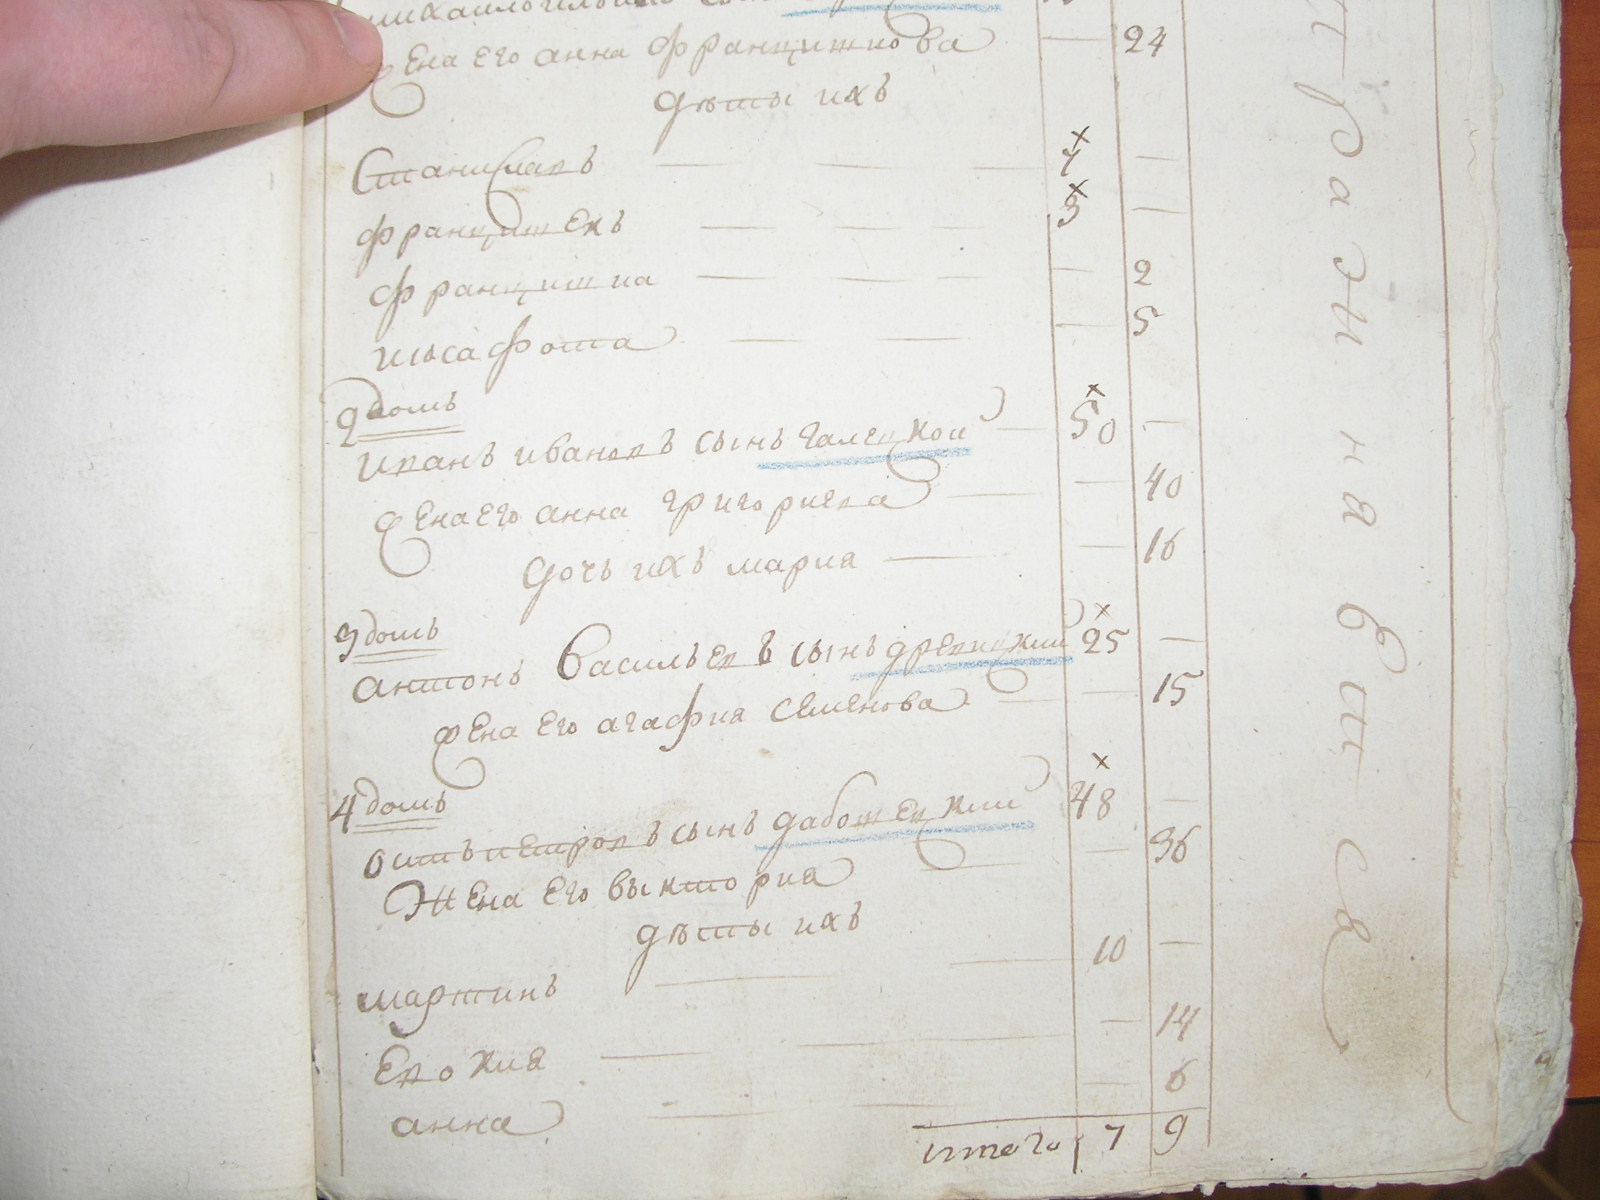 жена его анна францишкова — 24
дѣты ихъ
Станиславъ — — — 7 —
францишекъ — — — 3 —
францишка — — — — 2
иоcафота — — — 5
2 домъ
иванъ ивановъ сынъ галецкои — 50 —
жена его анна григориева — — 40
дочь ихъ мария — — 16
3 домъ
антонъ васильевъ сынъ древицкии 25 —
жена его агафия семенова — — 15
4 домъ
осипъ петровъ сынъ дабошецкии 48 —
жена его выктория — — 36
дѣты ихъ
мартинъ — — 10 —
Евокия — — — 14
анна — — — 6
итого 7 9